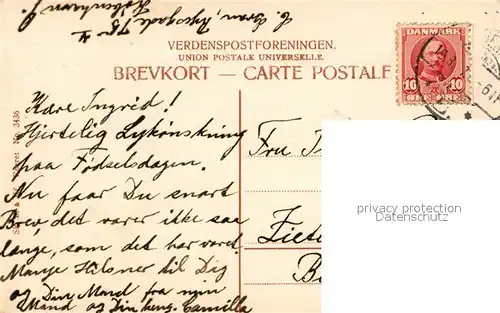 København
VERDENSPOSTFORENINGEN.
UNION POSTALE UNIVERSELLE.
BREVKORT — CARTE POSTALE
DANMARK
10 10
ØRE
No. 3436
Kære Ingrid!
Hjertelig Lykönskning
paa Födselsdagen.
Nu faar Du snart
Brev det varer ikke saa
lange, som det har varet.
Mange Hilsner til Dig
og Din Mand fra min
Mand og Din heng. Camilla
Fru
privacy protection
Datenschutz